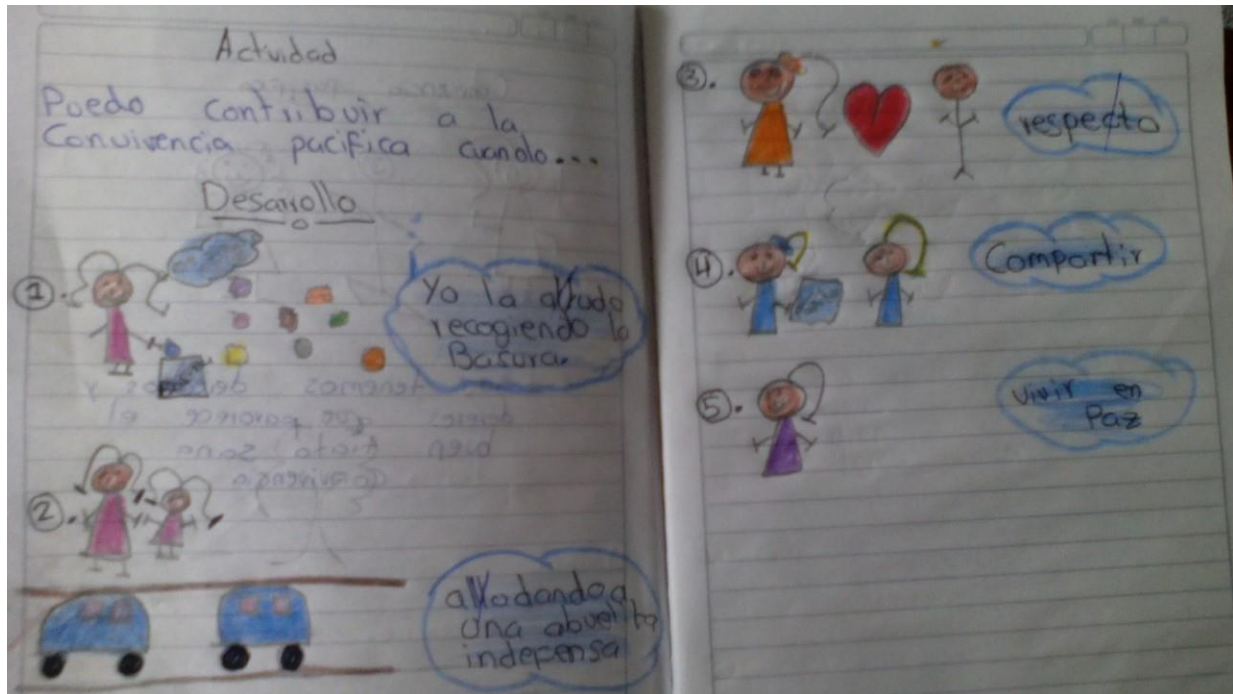 Actividad
Puedo contribuir a la
Convivencia pacifica cuando...
Desarrollo
1.
Yo la alludo
recogiendo la
Basura.
2.
allodando a
una abuelita
indepensa
3.
respecto
4.
Compartir
5.
vivir en
Paz